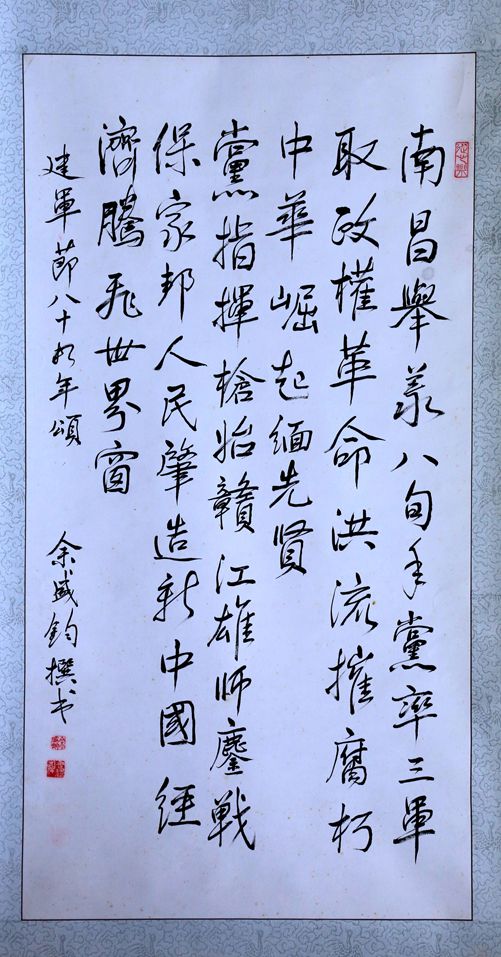 南昌舉義八旬年黨率三軍
取政權革命洪流摧腐朽
中華崛起緬先賢
黨指揮槍始贛江雄師鏖戰
保家邦人民肇造新中國經
濟騰飛世界窗
建軍節八十九年頌
余盛鈞撰书